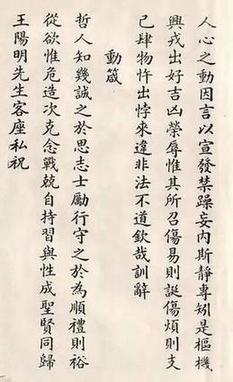 人心之動因言以宣發禁躁妄內斯靜專矧是樞機
興戎出好吉凶榮辱惟其所召傷易則誕傷煩則支
己肆物忤出悖來違非法不道欽哉訓辭
動箴
哲人知幾誠之於思志士勵行守之於為順禮則裕
從欲惟危造次克念戰兢自持習與性成聖賢同歸
王陽明先生客座私祝